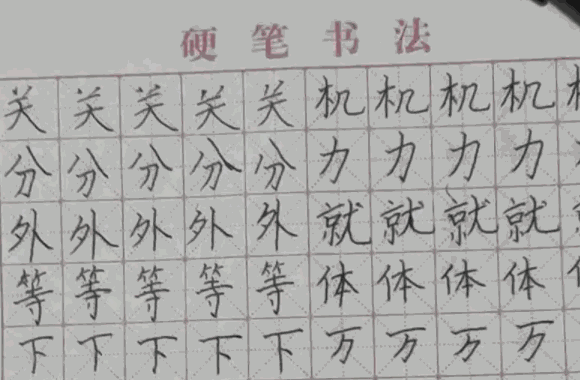 硬笔书法
关关关关关机机机机
分分分分分力力力力
外外外外外就就就就
等等等等等体体体体
下下下下下万万万万